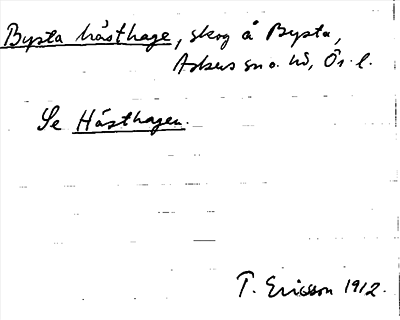 Bysta hästhage, skog å Bysta,
Askers sn o. hd, Ör. l.
Se Hästhagen.
T. Ericsson 1912.